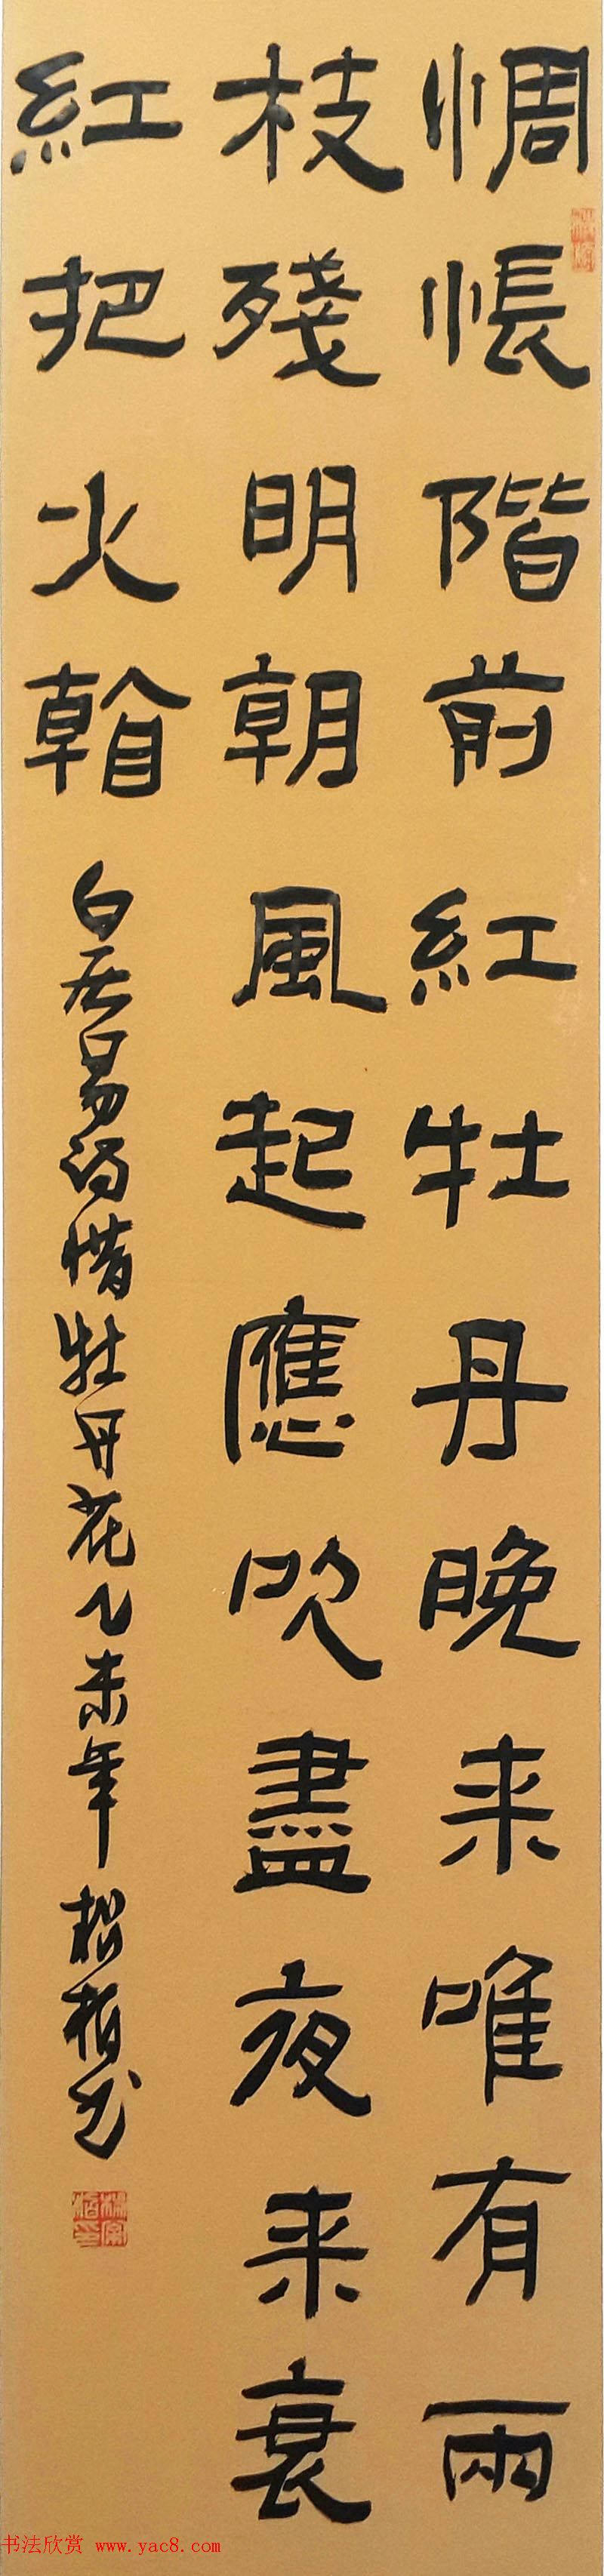 惆悵階前紅牡丹晚来唯有兩
枝殘明朝風起應吹盡夜来衰
紅把火
白居易詩惜牡丹花乙未年松柏书
书法欣赏 www.yac8.com